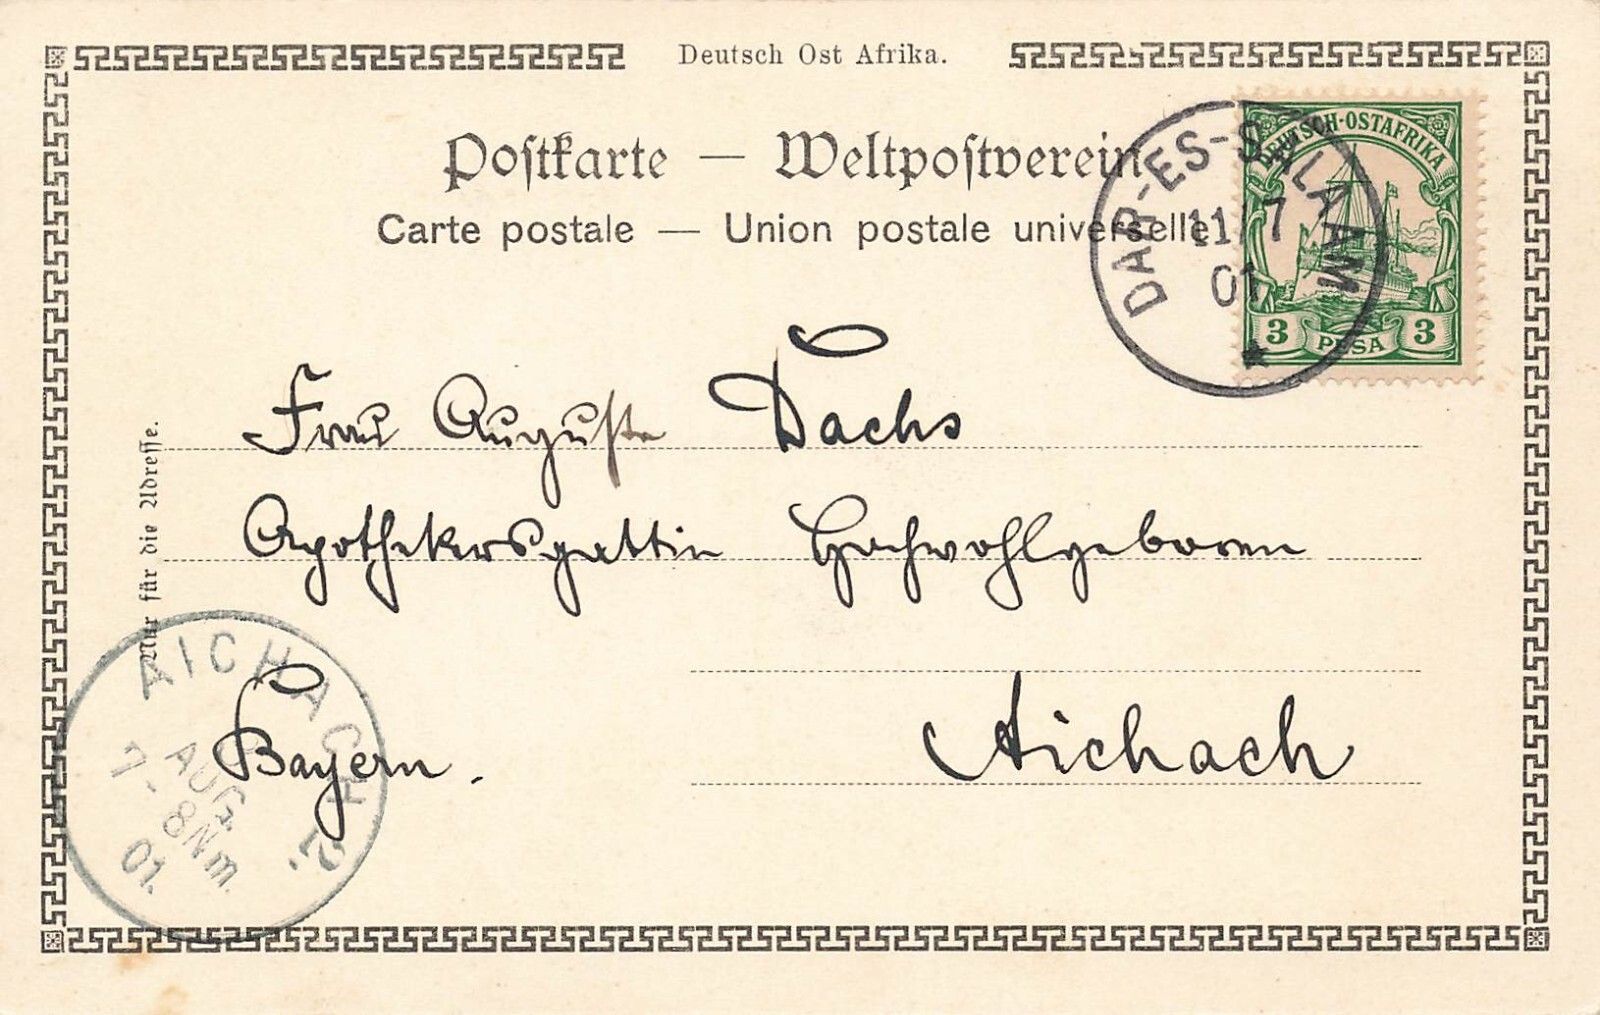 Deutsch Ost Afrika.
Postkarte — Weltpostverein
Carte postale — Union postale universelle
DEUTSCH-OSTAFRIKA
3 PESA 3
DAR-ES-SALAAM
11/7
01
*
Frau Auguste Dachs
Apothekersgattin Hochwohlgeboren
Aichach
Bayern.
Nur für die Adresse.
AICHACH
7 AUG
7-8Nm.
01.